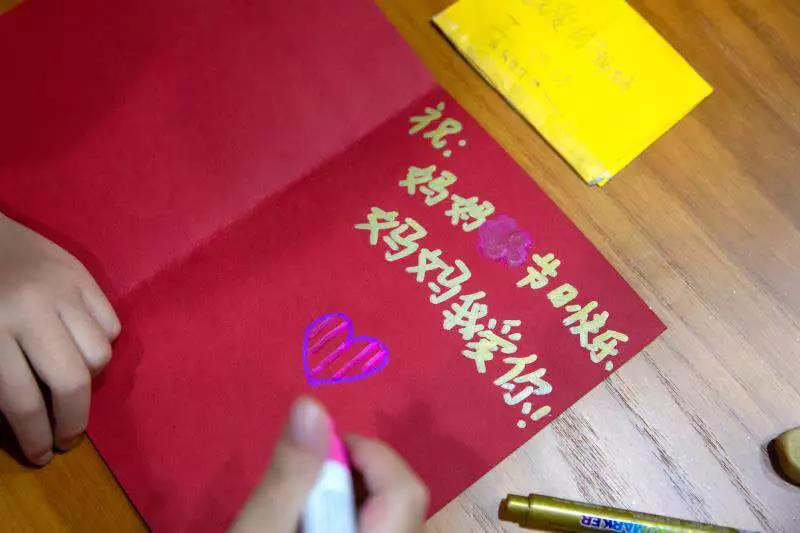 祝:
妈妈节日快乐,
妈妈我爱你!!
MARKER